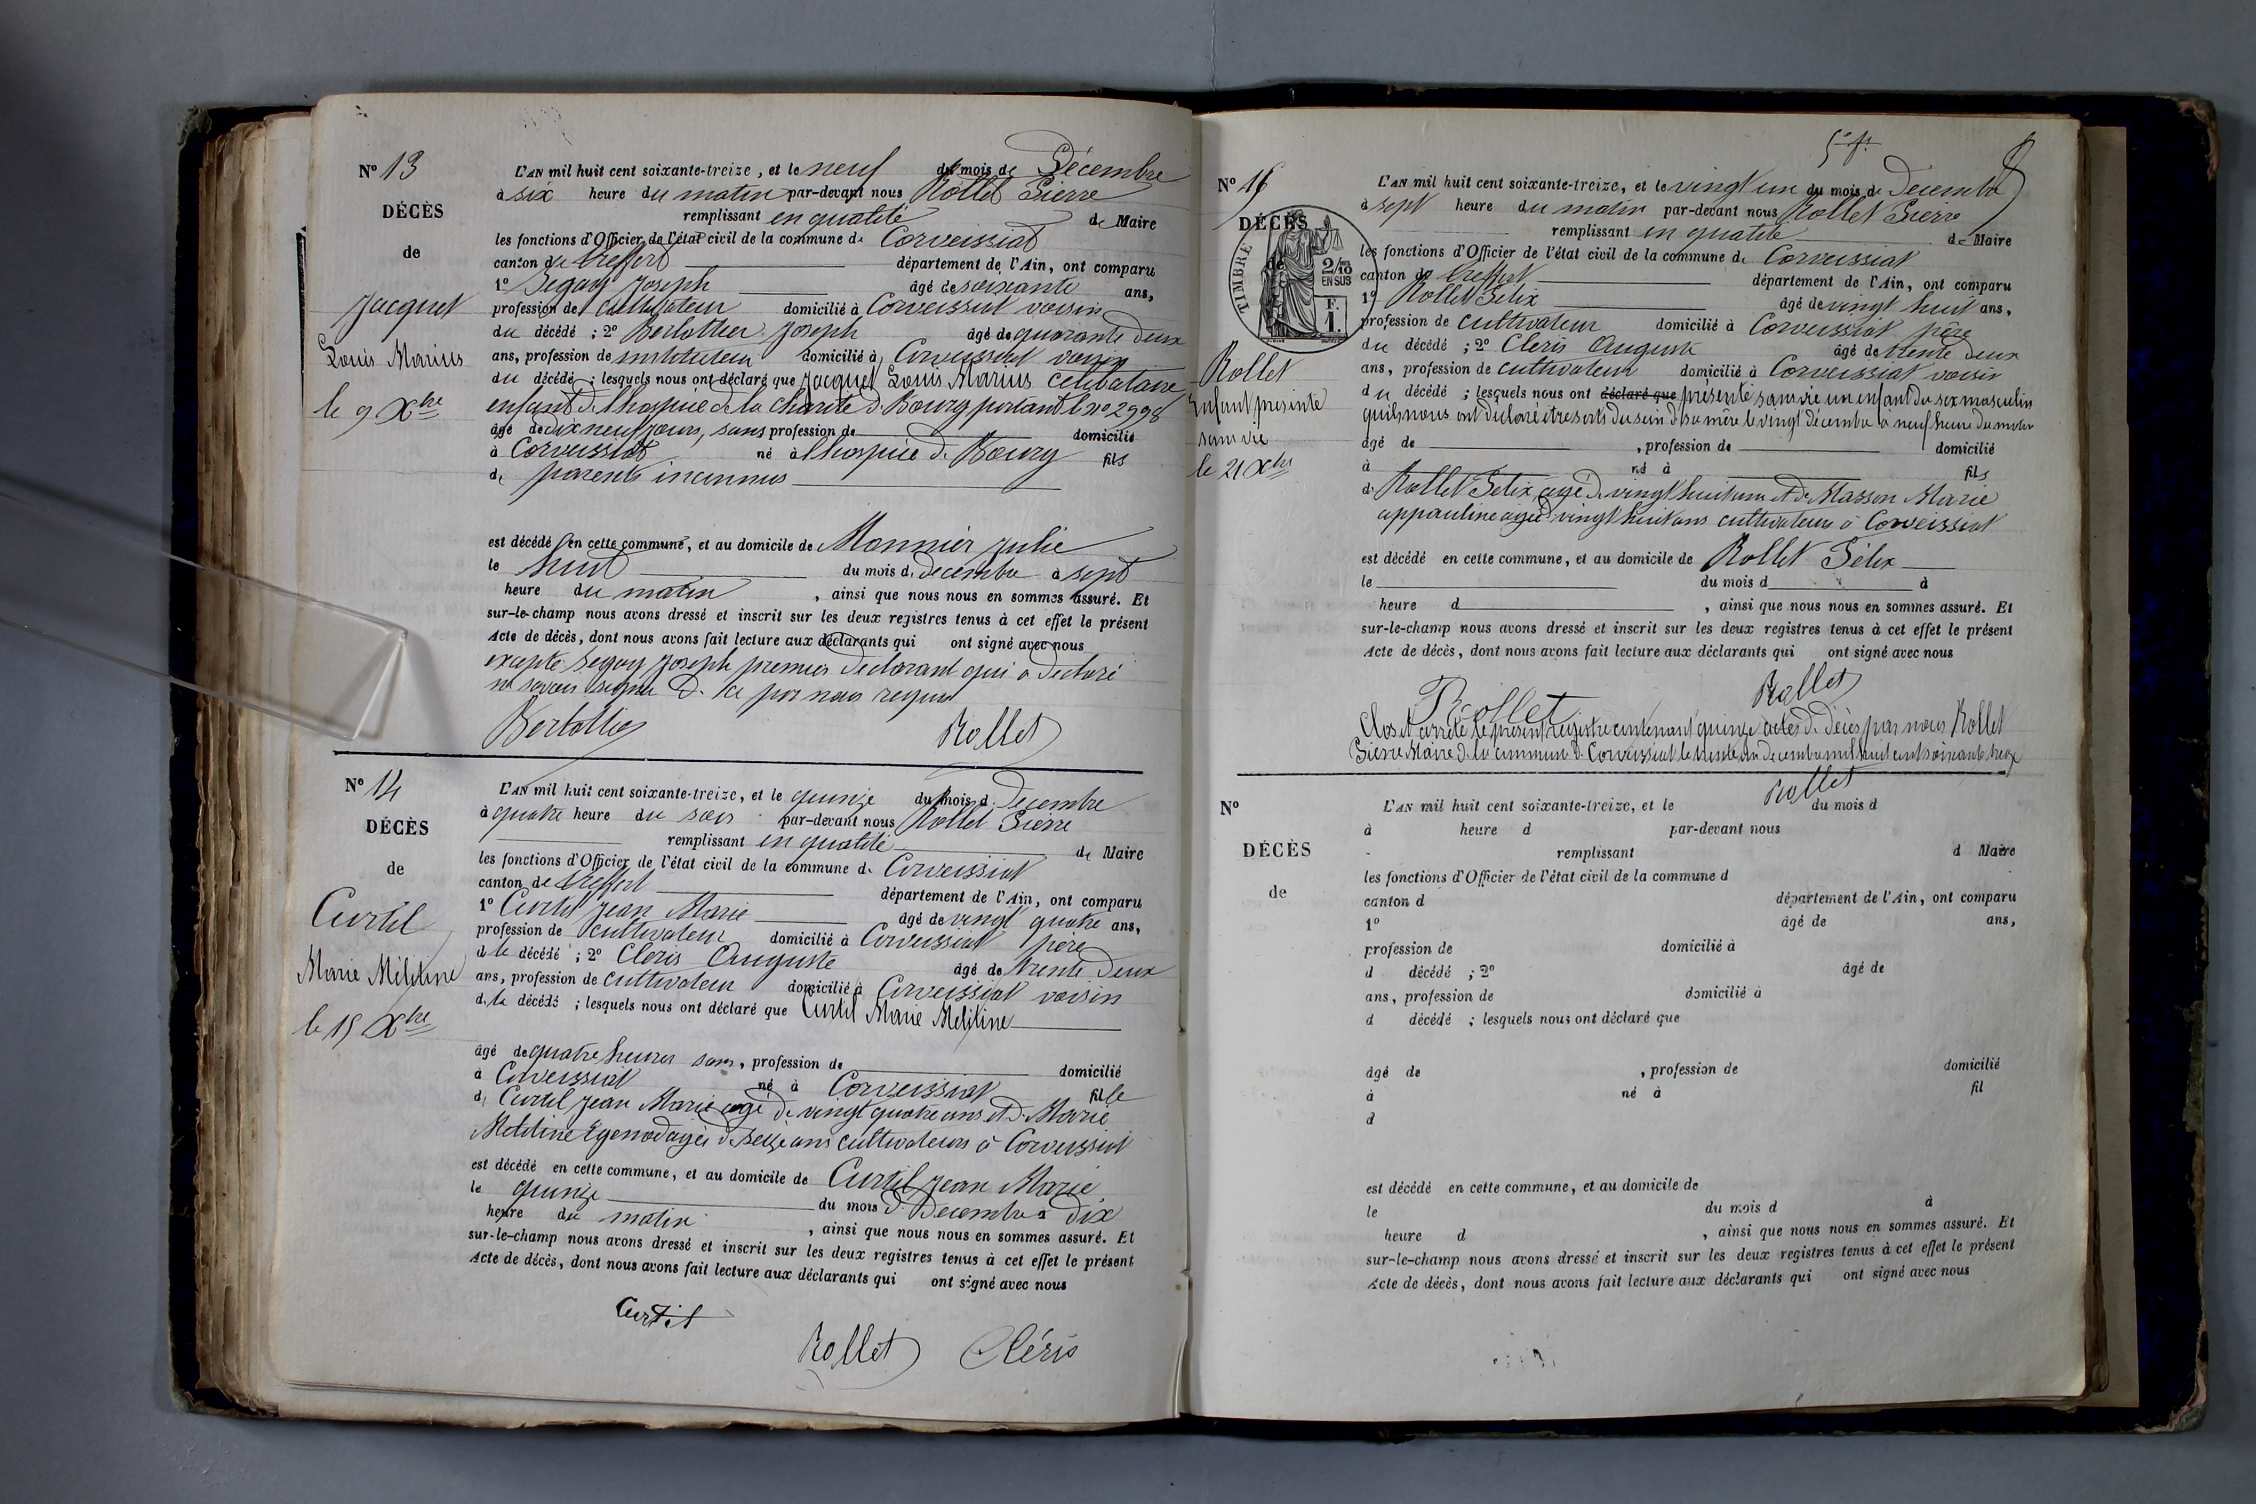 N° 13
DÉCÈS
de
Jacquet
Louis Marius
le 9 Xbre
L'AN mil huit cent soixante-treize, et le neuf du mois de Décembre
à six heure du matin par-devant nous Rollet Pierre
remplissant en qualité de Maire
les fonctions d'Officier de l'état civil de la commune de Corveissiat
canton de Treffort département de l'Ain, ont comparu
1° Segoy Joseph âgé de soixante ans,
profession de cultivateur domicilié à Corveissiat voisin
du décédé ; 2° Berlottier Joseph âgé de quarante deux
ans, profession de instituteur domicilié à Corveissiat voisin
du décédé ; lesquels nous ont déclaré que Jacquet Louis Marius célibataire
enfant de l'hospice de la charité de Bourg portant le n° 2998
âgé de dix neuf jours, sans profession de domicilié
à Corveissiat né à l'hospice de Bourg fils
de parents inconnus
est décédé en cette commune, et au domicile de Monnier Julie
le huit du mois de décembre à sept
heure du matin , ainsi que nous nous en sommes assuré. Et
sur-le-champ nous avons dressé et inscrit sur les deux registres tenus à cet effet le présent
Acte de décès, dont nous avons fait lecture aux déclarants qui ont signé avec nous
excepté Segoy Joseph premier déclarant qui a déclaré
ne savoir signer de ce par nous requis
Berlottier Rollet
N° 14
DÉCÈS
de
Curtil
Marie Mélitine
le 15 Xbre
L'AN mil huit cent soixante-treize, et le quinze du mois de Décembre
à quatre heure du soir par-devant nous Rollet Pierre
remplissant en qualité de Maire
les fonctions d'Officier de l'état civil de la commune de Corveissiat
canton de Treffort département de l'Ain, ont comparu
1° Curtil Jean Marie âgé de vingt quatre ans,
profession de cultivateur domicilié à Corveissiat père
de le décédé ; 2° Cleris Auguste âgé de trente deux
ans, profession de cultivateur domicilié à Corveissiat voisin
de la décédé ; lesquels nous ont déclaré que Curtil Marie Melitine
âgé de quatre heures sans, profession de domicilié
à Corveissiat né à Corveissiat fille
de Curtil Jean Marie agé de vingt quatre ans et de Marie
Melitine agée de seize ans cultivateurs à Corveissiat
est décédé en cette commune, et au domicile de Curtil Jean Marie
le quinze du mois de Décembre à dix
heure du matin , ainsi que nous nous en sommes assuré. Et
sur-le-champ nous avons dressé et inscrit sur les deux registres tenus à cet effet le présent
Acte de décès, dont nous avons fait lecture aux déclarants qui ont signé avec nous
Curtil
Rollet Cléris
N° 15
DÉCÈS
de
TIMBRE
2/10
EN SUS
F.
1.
Rollet
Enfant présenté
sans vie
le 21 Xbre
L'AN mil huit cent soixante-treize, et le vingt un du mois de Decembre
à sept heure du matin par-devant nous Rollet Pierre
remplissant en qualité de Maire
les fonctions d'Officier de l'état civil de la commune de Corveissiat
canton de Treffort département de l'Ain, ont comparu
1° Rollet Félix âgé de vingt huit ans,
profession de cultivateur domicilié à Corveissiat père
du décédé ; 2° Cleris Auguste âgé de trente deux
ans, profession de cultivateur domicilié à Corveissiat voisin
du décédé ; lesquels nous ont déclaré que présenté sans vie un enfant du sex masculin
qu'ils nous ont déclaré être sorti du sein de sa mère le vingt décembre à neuf heure du matin
âgé de , profession de domicilié
à né à fils
de Rollet Félix agé de vingt huit ans et de Masson Marie
appauline agée vingt huit ans cultivateurs à Corveissiat
est décédé en cette commune, et au domicile de Rollet Félix
le du mois d à
heure d , ainsi que nous nous en sommes assuré. Et
sur-le-champ nous avons dressé et inscrit sur les deux registres tenus à cet effet le présent
Acte de décès, dont nous avons fait lecture aux déclarants qui ont signé avec nous
Rollet Rollet
Clos et arrêté le présent registre contenant quinze actes de décès par nous Rollet
Pierre Maire de la commune de Corveissiat le trente un decembre mil huit cent soixante treize
Rollet
N°
DÉCÈS
de
L'AN mil huit cent soixante-treize, et le du mois d
à heure d par-devant nous
remplissant d Maire
les fonctions d'Officier de l'état civil de la commune d
canton d département de l'Ain, ont comparu
1° âgé de ans,
profession de domicilié à
d décédé ; 2° âgé de
ans, profession de domicilié à
d décédé ; lesquels nous ont déclaré que
âgé de , profession de domicilié
à né à fil
d
est décédé en cette commune, et au domicile de
le du mois d à
heure d , ainsi que nous nous en sommes assuré. Et
sur-le-champ nous avons dressé et inscrit sur les deux registres tenus à cet effet le présent
Acte de décès, dont nous avons fait lecture aux déclarants qui ont signé avec nous